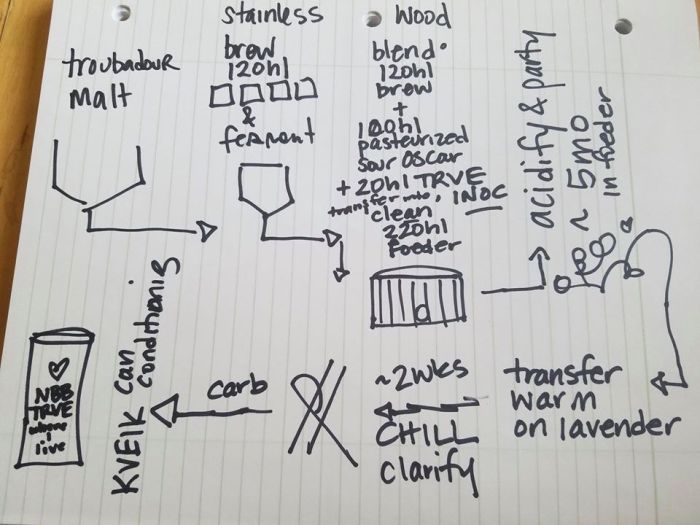 troubadour
malt
stainless
brew
120hl
&
ferment
Wood
blend
120hl
brew
+
100hl
pasteurized
sour OSCAR
+ 20hl TRVE
transfer into, INOC
clean
220hl
foeder
acidify & party
~ 5mo
in foeder
transfer
warm
on lavender
~2wks
CHILL
clarify
carb
KVEIK can
conditioning
NBB
TRVE
where
I
live